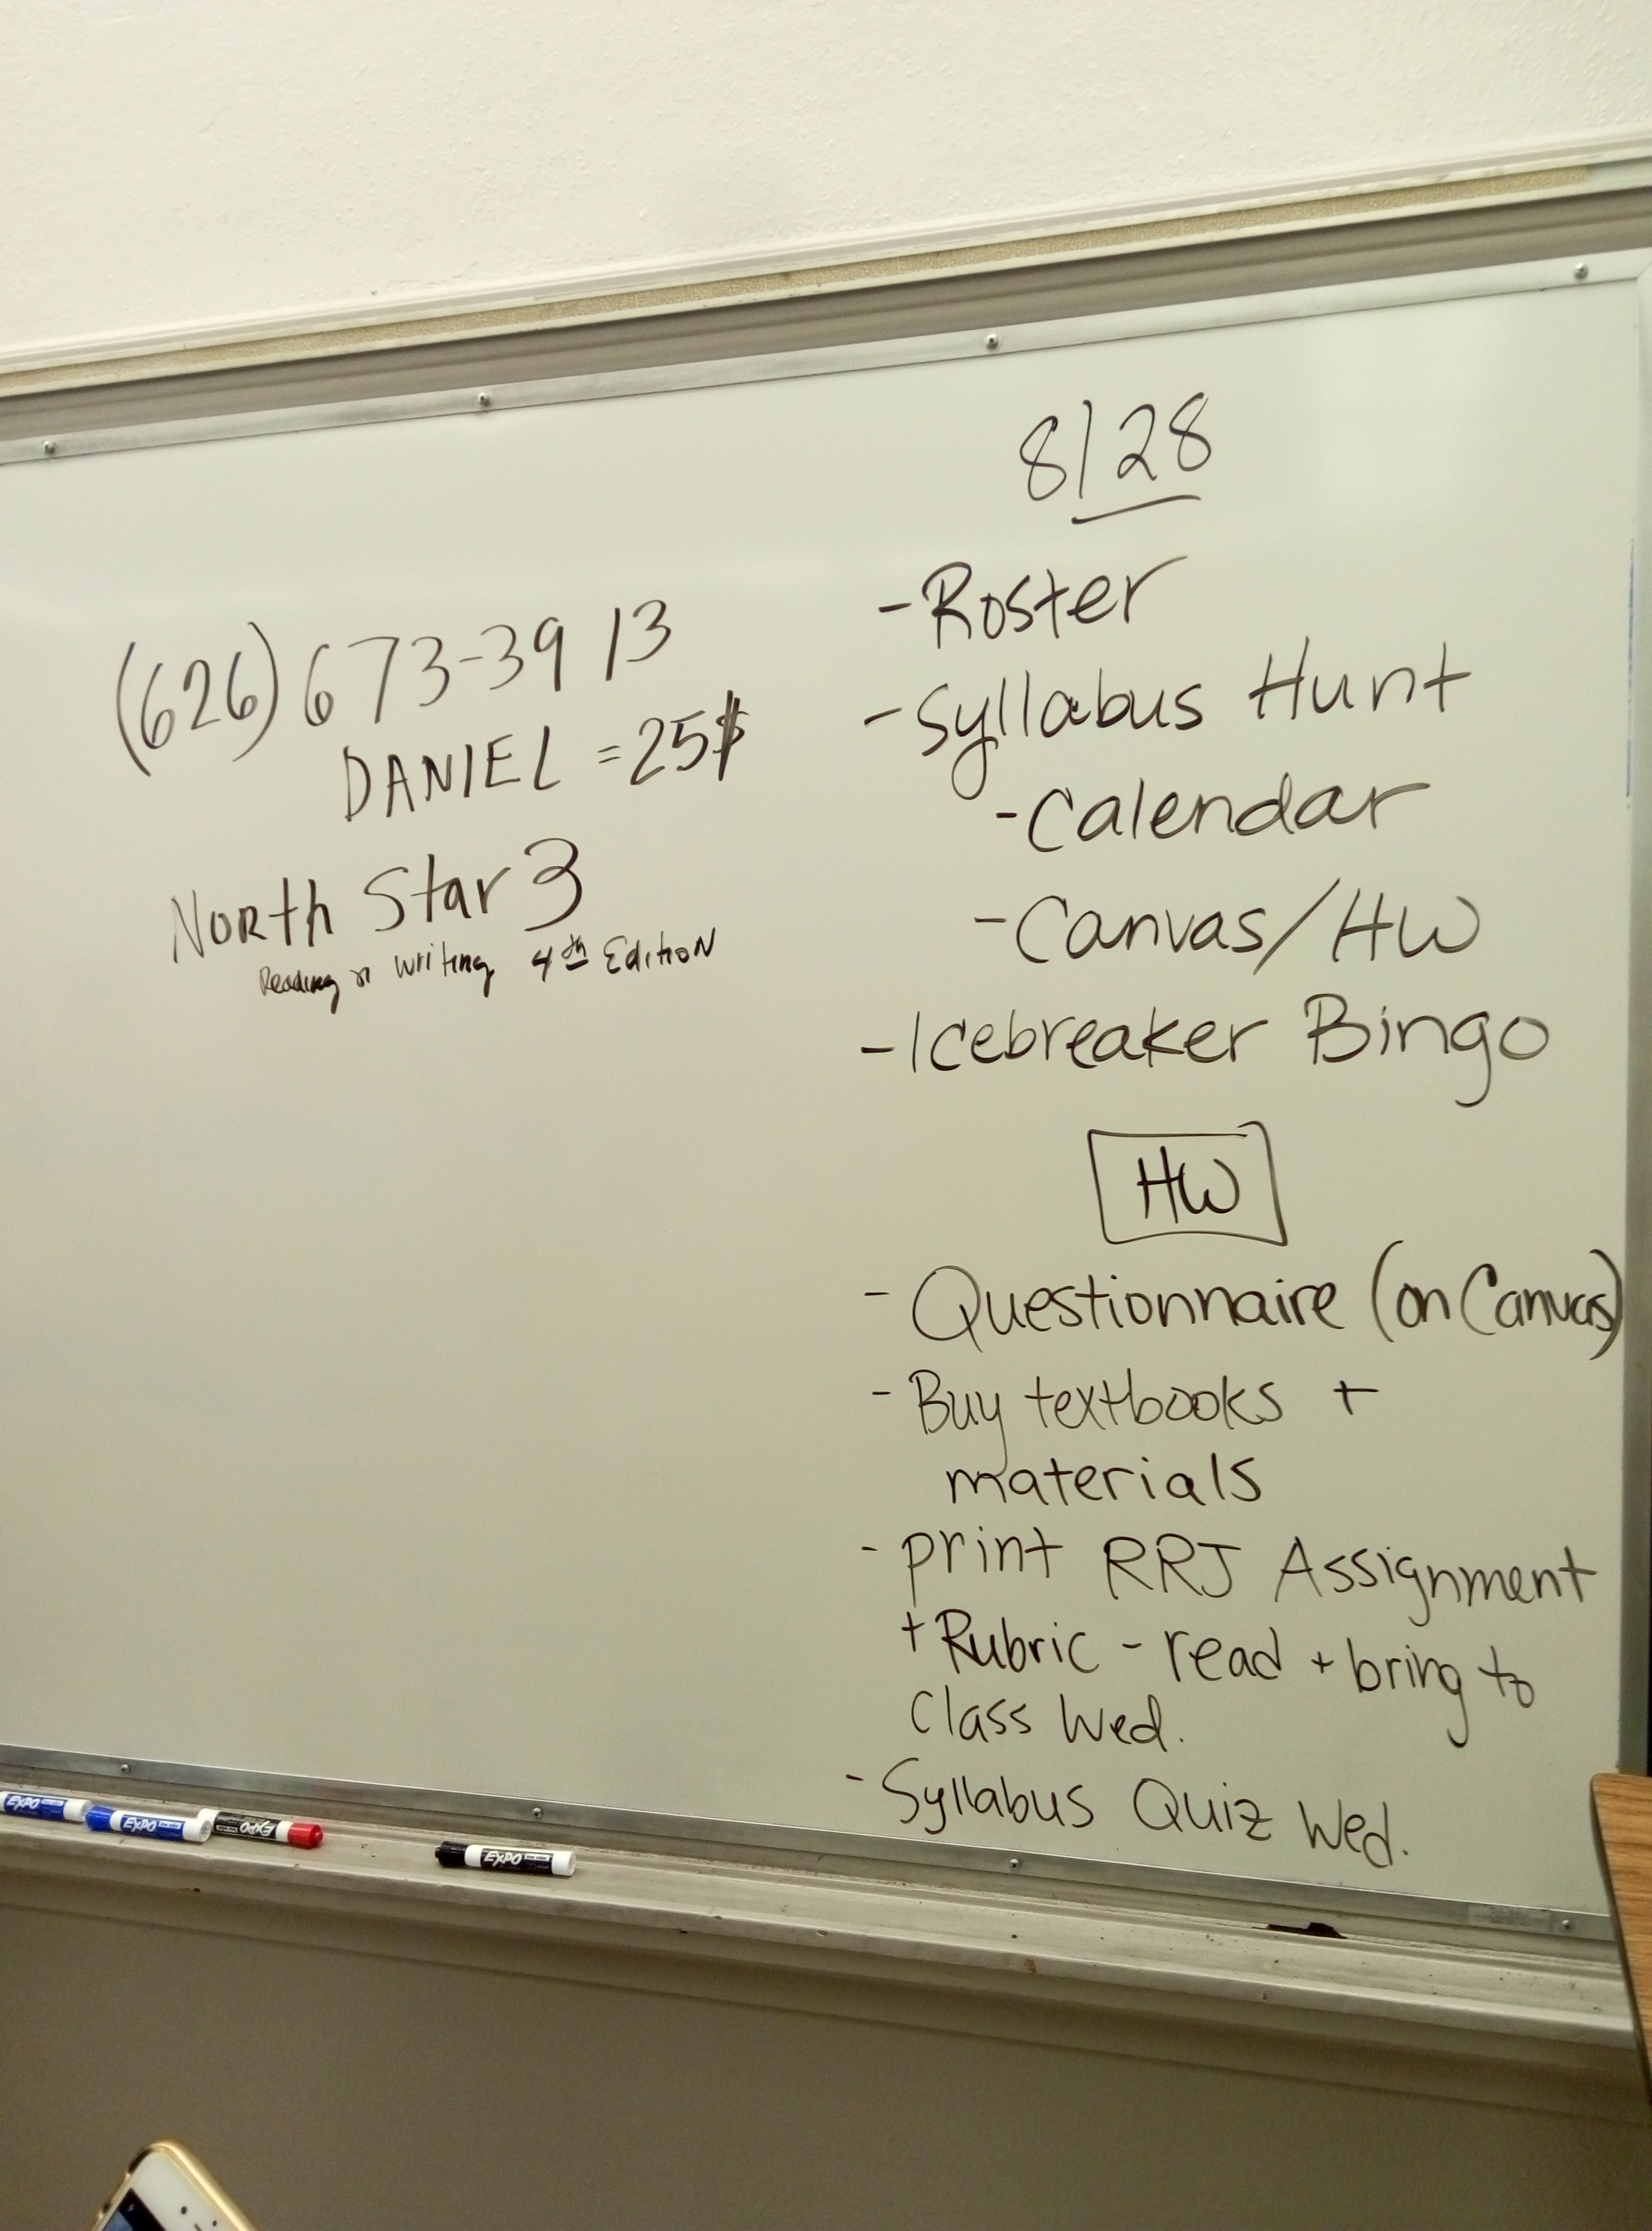 (626) 673-3913
DANIEL = 25$
NORTH Star 3
Reading & Writing 4th Edition
8/28
- Roster
- Syllabus Hunt
- Calendar
- Canvas/HW
- Icebreaker Bingo
HW
- Questionnaire (on Canvas)
- Buy textbooks +
materials
- print RRJ Assignment
+ Rubric - read + bring to
Class Wed.
- Syllabus Quiz Wed.
EXPO
EXPO
EXPO
EXPO